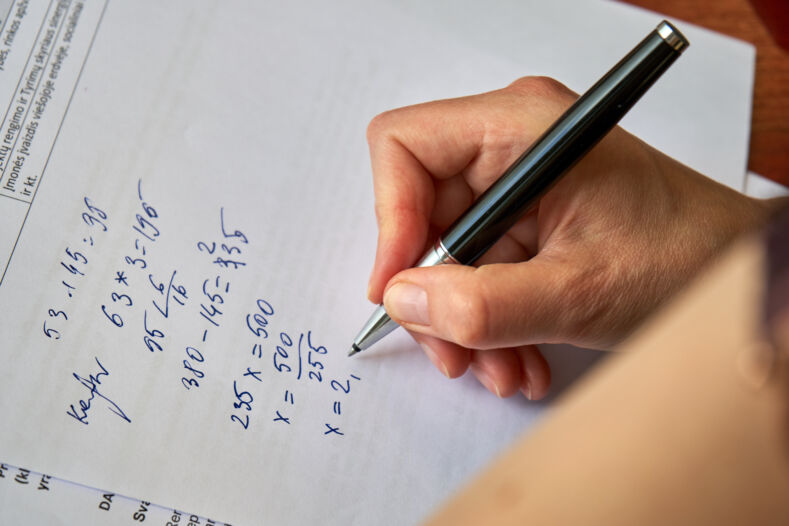 ydės, rinkos apž
ktų rengimo ir Tyrimų skyriaus sinergi
Įmonės įvaizdis viešojoje erdvėje, socialiniai
ir kt.
53.145=38
63*3=195
95 6
16
380-145=235
235x=500
x=500
255
x=2,
(ki
yr
DA
Sva
Ren